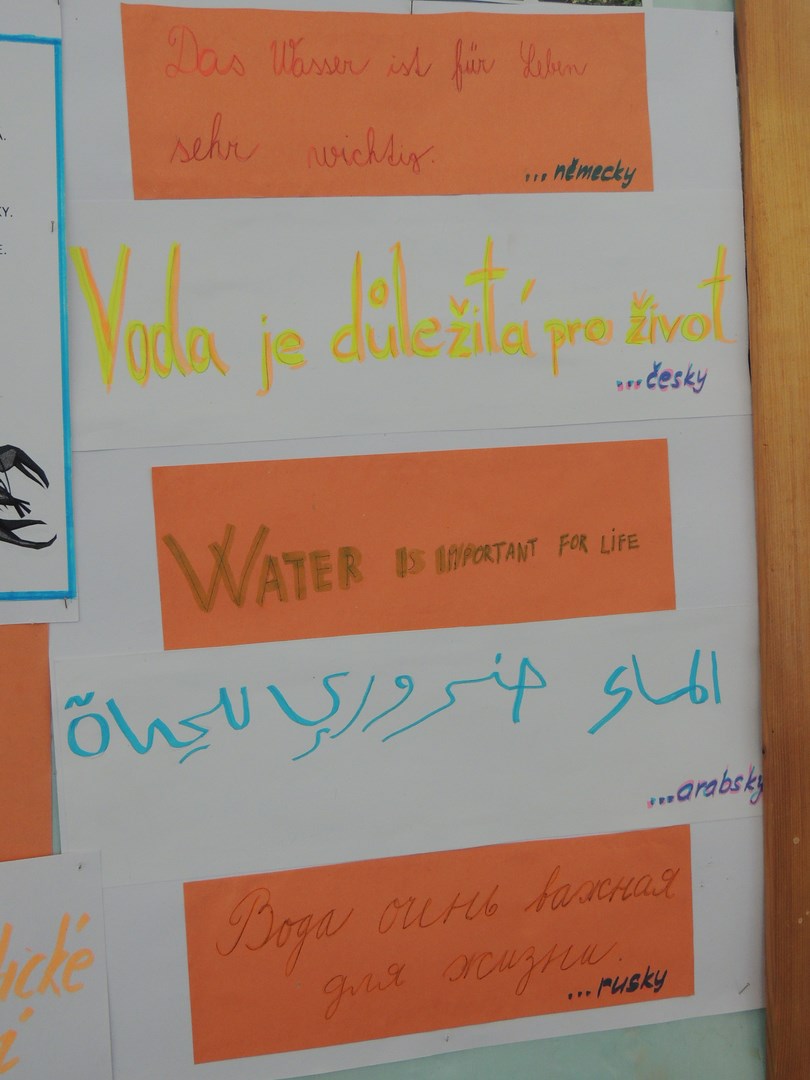 Das Wasser ist für Leben
sehr wichtig.
...německy
Voda je důležitá pro život
...česky
WATER IS IMPORTANT FOR LIFE
الماء ضروري للحياة
...arabsky
Вода очень важная
для жизни.
...rusky